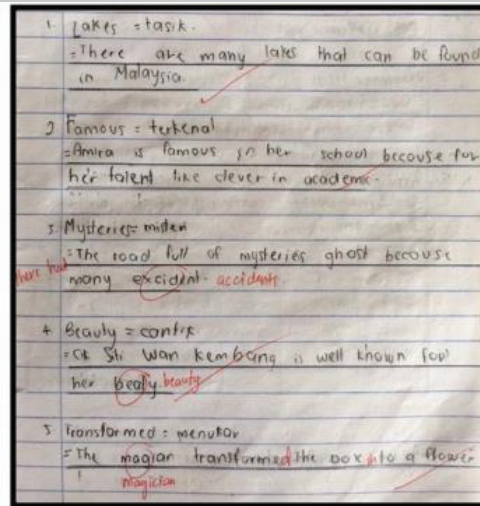 1. Lakes = tasik.
= There are many lakes that can be found
in Malaysia.
2 Famous = terkenal
= Amira is famous in her school becouse for
her talent like clever in academic.
3. Mysteries = misteri
= The road full of mysteries ghost becouse
there had many excident. accidents.
4. Beauty = cantik
= Cik Siti Wan Kembang is well known for
her beaty. beauty
5 Transformed = menukar
= The magian transformed the box into a flower
magician